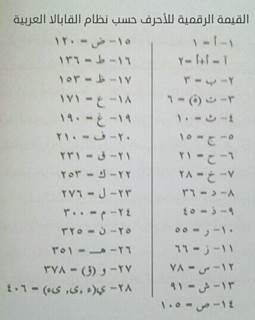 القيمة الرقمية للأحرف حسب نظام القابالا العربية
١- أ = ١
آ = أ+أ = ٢
٢- ب = ٣
٣- ت (ة) = ٦
٤- ث = ١٠
٥- ج = ١٥
٦- ح = ٢١
٧- خ = ٢٨
٨- د = ٣٦
٩- ذ = ٤٥
١٠- ر = ٥٥
١١- ز = ٦٦
١٢- س = ٧٨
١٣- ش = ٩١
١٤- ص = ١٠٥
١٥- ض = ١٢٠
١٦- ط = ١٣٦
١٧- ظ = ١٥٣
١٨- ع = ١٧١
١٩- غ = ١٩٠
٢٠- ف = ٢١٠
٢١- ق = ٢٣١
٢٢- ك = ٢٥٣
٢٣- ل = ٢٧٦
٢٤- م = ٣٠٠
٢٥- ن = ٣٢٥
٢٦- هـ = ٣٥١
٢٧- و (ؤ) = ٣٧٨
٢٨- ي(ء ,ى, ىء) = ٤٠٦